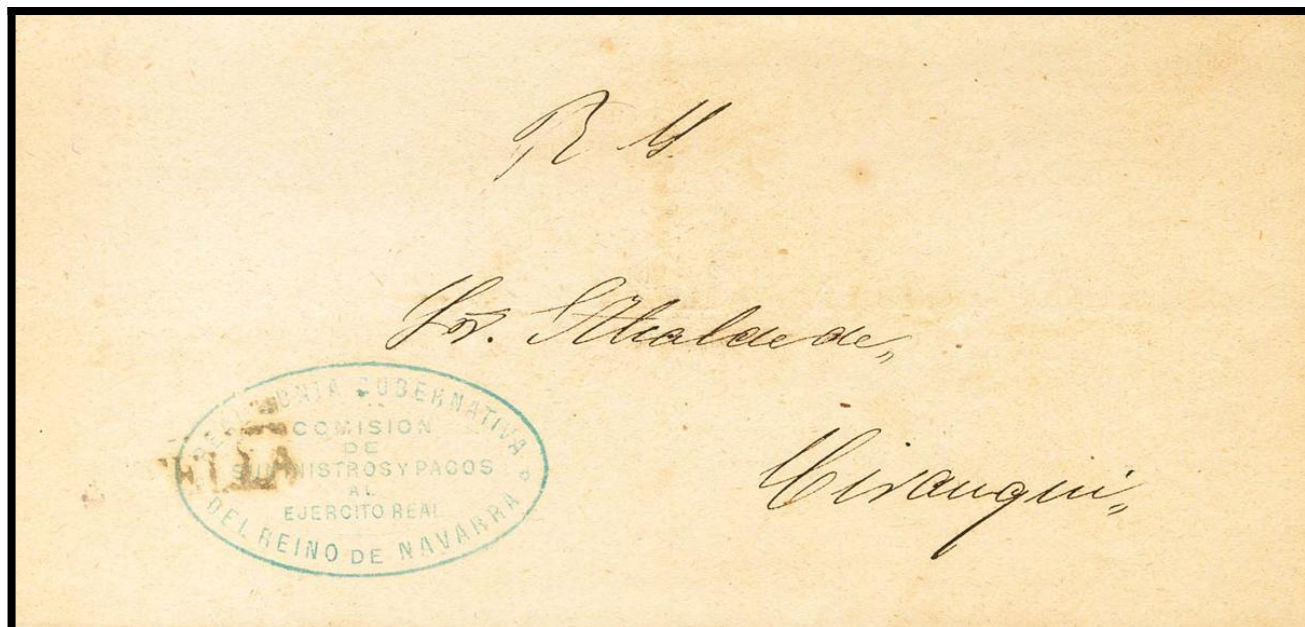 R. N.
Sor. Alcalde de
Cirauqui
REAL JUNTA GUBERNATIVA
COMISION
DE
SUMINISTROS Y PAGOS
AL
EJERCITO REAL
DEL REINO DE NAVARRA
ELLA